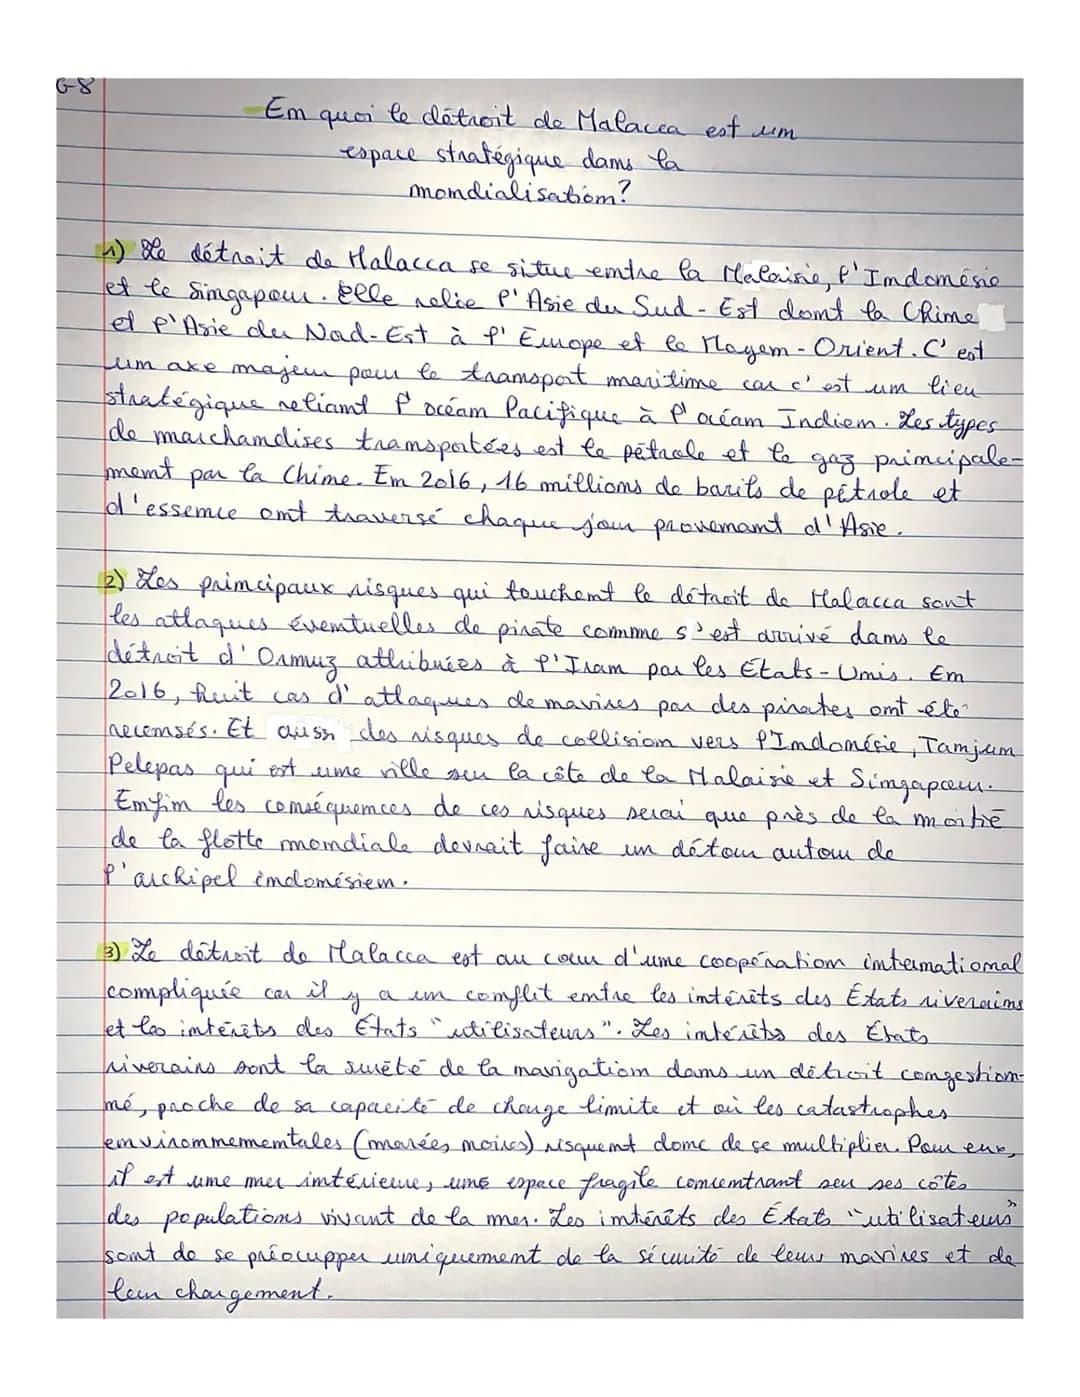 G-8
En quoi le détroit de Malacca est un
espace stratégique dans la
mondialisation?
1) Le détroit de Malacca se situe entre la Malaisie, l'Indonésie
et le Singapour. Elle relie l'Asie du Sud-Est dont la Chine
et l'Asie du Nord-Est à l'Europe et le Moyen-Orient. C'est
un axe majeur pour le transport maritime car c'est un lieu
stratégique reliant l'océan Pacifique à l'océan Indien. Les types
de marchandises transportées est le pétrole et le gaz principale-
ment par la Chine. En 2016, 16 millions de barils de pétrole et
d'essence ont traversé chaque jour provenant d'Asie.
2) Les principaux risques qui touchent le détroit de Malacca sont
les attaques éventuelles de pirate comme s'est arrivé dans le
détroit d'Ormuz attribuées à l'Iran par les Etats-Unis. En
2016, huit cas d'attaques de navires par des pirates ont été
recensés. Et aussi des risques de collision vers l'Indonésie, Tanjun
Pelepas qui est une ville sur la côte de la Malaisie et Singapour.
Enfin les conséquences de ces risques serai que près de la moitié
de la flotte mondiale devrait faire un détour autour de
l'archipel indonésien.
3) Le détroit de Malacca est au cœur d'une coopération international
compliquée car il y a un conflit entre les intérêts des États riverains
et les intérêts des États "utilisateurs". Les intérêts des États
riverains sont la sureté de la navigation dans un détroit congestion-
né, proche de sa capacité de charge limite et où les catastrophes
environnementales (marées noires) risquent donc de se multiplier. Pour eux,
il est une mer intérieure, une espace fragile concentrant sur ses côtes
des populations vivant de la mer. Les intérêts des États "utilisateurs"
sont de se préocupper uniquement de la sécurité de leurs navires et de
leur chargement.